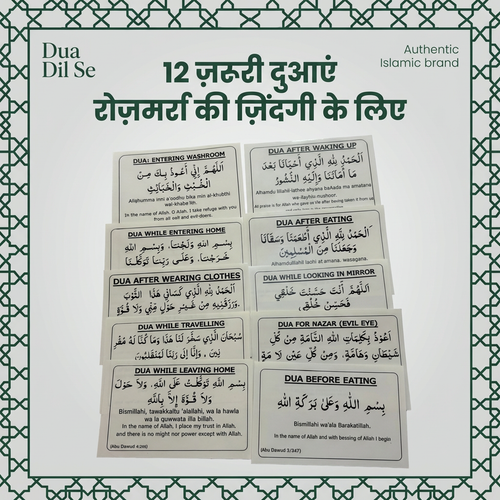 Dua
Dil Se
Authentic
Islamic brand
12 ज़रूरी दुआएं
रोज़मर्रा की ज़िंदगी के लिए
DUA: ENTERING WASHROOM
اَللّٰهُمَّ إِنِّي أَعُوذُ بِكَ مِنَ
الْخُبُثِ وَالْخَبَائِثِ
Allahumma inni a'oodhu bika min al-khubthi
wal-khaba'ith.
In the name of Allah. O Allah, I take refuge with you
from all evil and evil-doers.
DUA AFTER WAKING UP
اَلْحَمْدُ لِلّٰهِ الَّذِي أَحْيَانَا بَعْدَ
مَا أَمَاتَنَا وَإِلَيْهِ النُّشُورُ
Alhamdu lillahil-lathee ahyana ba'ada ma amatana
wa-ilayhin-nushoor.
DUA WHILE ENTERING HOME
بِسْمِ اللهِ وَلَجْنَا، وَبِسْمِ اللهِ
خَرَجْنَا، وَعَلَى رَبِّنَا تَوَكَّلْنَا
DUA AFTER EATING
اَلْحَمْدُ لِلّٰهِ الَّذِي أَطْعَمَنَا وَسَقَانَا
وَجَعَلَنَا مِنَ الْمُسْلِمِينَ
DUA AFTER WEARING CLOTHES
اَلْحَمْدُ لِلّٰهِ الَّذِي كَسَانِي هٰذَا الثَّوْبَ
وَرَزَقَنِيهِ مِنْ غَيْرِ حَوْلٍ مِنِّي وَلَا قُوَّةٍ
DUA WHILE LOOKING IN MIRROR
اَللّٰهُمَّ أَنْتَ حَسَّنْتَ خَلْقِي
فَحَسِّنْ خُلُقِي
DUA WHILE TRAVELLING
سُبْحَانَ الَّذِي سَخَّرَ لَنَا هٰذَا وَمَا كُنَّا لَهُ مُقْرِ
نِينَ، وَإِنَّا إِلَى رَبِّنَا لَمُنْقَلِبُونَ
DUA FOR NAZAR (EVIL EYE)
أَعُوذُ بِكَلِمَاتِ اللهِ التَّامَّةِ مِنْ كُلِّ
شَيْطَانٍ وَهَامَّةٍ، وَمِنْ كُلِّ عَيْنٍ لَامَّةٍ
DUA WHILE LEAVING HOME
بِسْمِ اللهِ تَوَكَّلْتُ عَلَى اللهِ، وَلَا حَوْلَ
وَلَا قُوَّةَ إِلَّا بِاللهِ
Bismillahi, tawakkaltu 'alallahi, wa la hawla
wa la quwwata illa billah.
In the name of Allah, I place my trust in Allah,
and there is no might nor power except with Allah.
(Abu Dawud 4:266)
DUA BEFORE EATING
بِسْمِ اللّٰهِ وَعَلَى بَرَكَةِ اللّٰهِ
Bismillahi wa'ala Barakatillah.
In the name of Allah and with bessing of Allah I begin
(Abu Dawud 3/347)